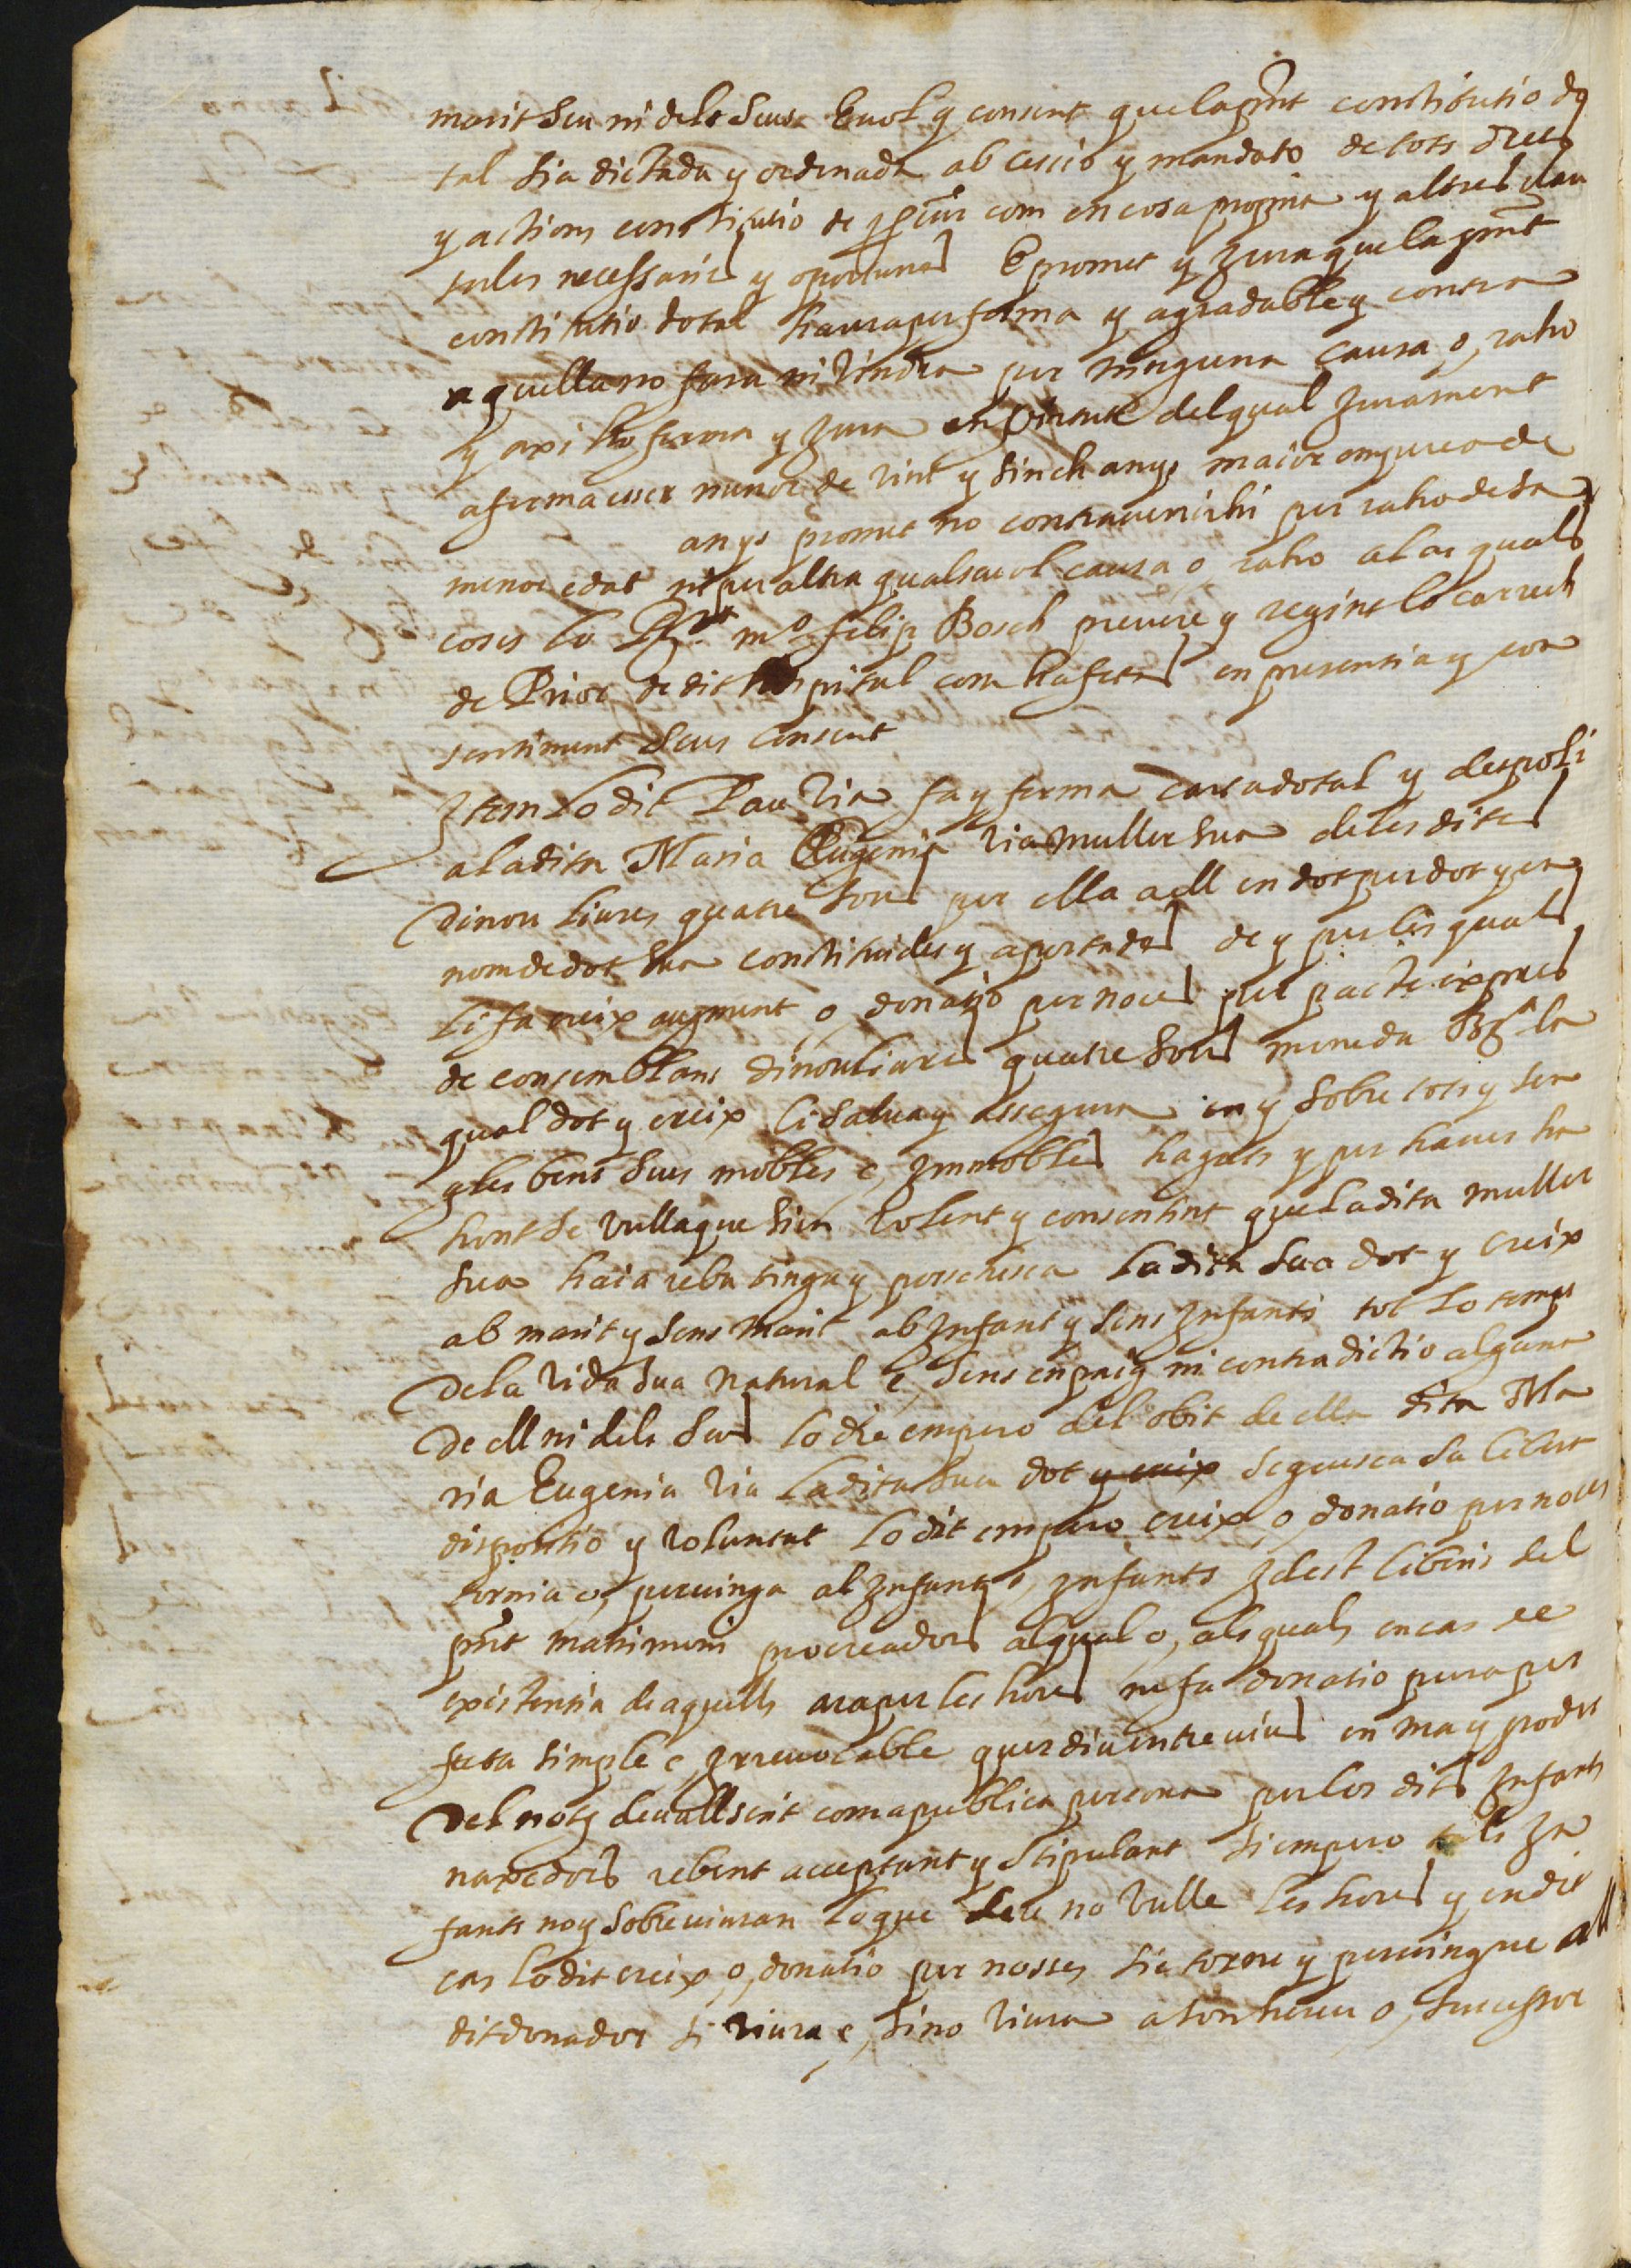 marit seu ni dels seus. E vol y consent que la pnt constitutio do
tal sia dictada y ordenada ab cessio y mandato de tots drets
y actions constitutio de com en cosa propria y altres clau
sules necessaries y oportunes E promet y jura que la pnt
constitutio dotal haura per ferma y agradable y contra
aquella no fara ni vindra per ninguna causa o, raho
y axi ho ferma y jura en virtut del qual jurament
aferma esser menor de vint y sinch anys maior empero de
anys promet no contravenirhi per raho de sa
menor edat ni per altra qualsevol causa o raho a las quals
coses lo Rnt mo felip Bosch prevere y regint lo carrech
de Prior de dit hospital com ha fetes en presentia y con
sentiment seus consent
Item lo dit Pau Via fa y ferma carta dotal y despoli
a la dita Maria Eugenia Via muller sua de les dites
dinou liures quatre sous per ella a ell en dot per dot y en
nom de dot sua constituides y aportades de y per les quals
li fa creix augment o, donatio per noces per pacte expres
de consemblans dinou liures quatre sous moneda Barna la
qual dot y creix li salva y assegura en y sobre tots y sen
gles bens seus mobles e, immobles haguts y per haver ha
hont se vulla que sien volent y consentint que la dita muller
sua haia reba tinga y posseesca la dita sua dot y creix
ab marit y sens marit ab infant y sens infants tot lo temps
de la vida sua natural e sens enpaig ni contradictio alguna
de ell ni dels seus lo die empero del obit de ella dita Ma
ria Eugenia Via la dita sua dot y creix seguesca sa libert
dispositio y voluntat lo dit empero creix o, donatio per noces
tornia o, pervinga al infant o, infants del
pnt matrimoni procreadors al qual o, als quals en cas de
existentia de aquells ara per les hores ne fa donatio pura per
feta simple e, irrevocable ques diu entre vius en ma y poder
del noty devall scrit com a publica persona per los dits infants
naxedors rebent acceptant y stipulant si empero tals in
fants noy sobreviuran lo que deu no vulle les hores y en dit
cas lo dit creix, o, donatio per nosses sie torne y pervingue all
dit donador si viura e, si no viura a son hereu o, successor